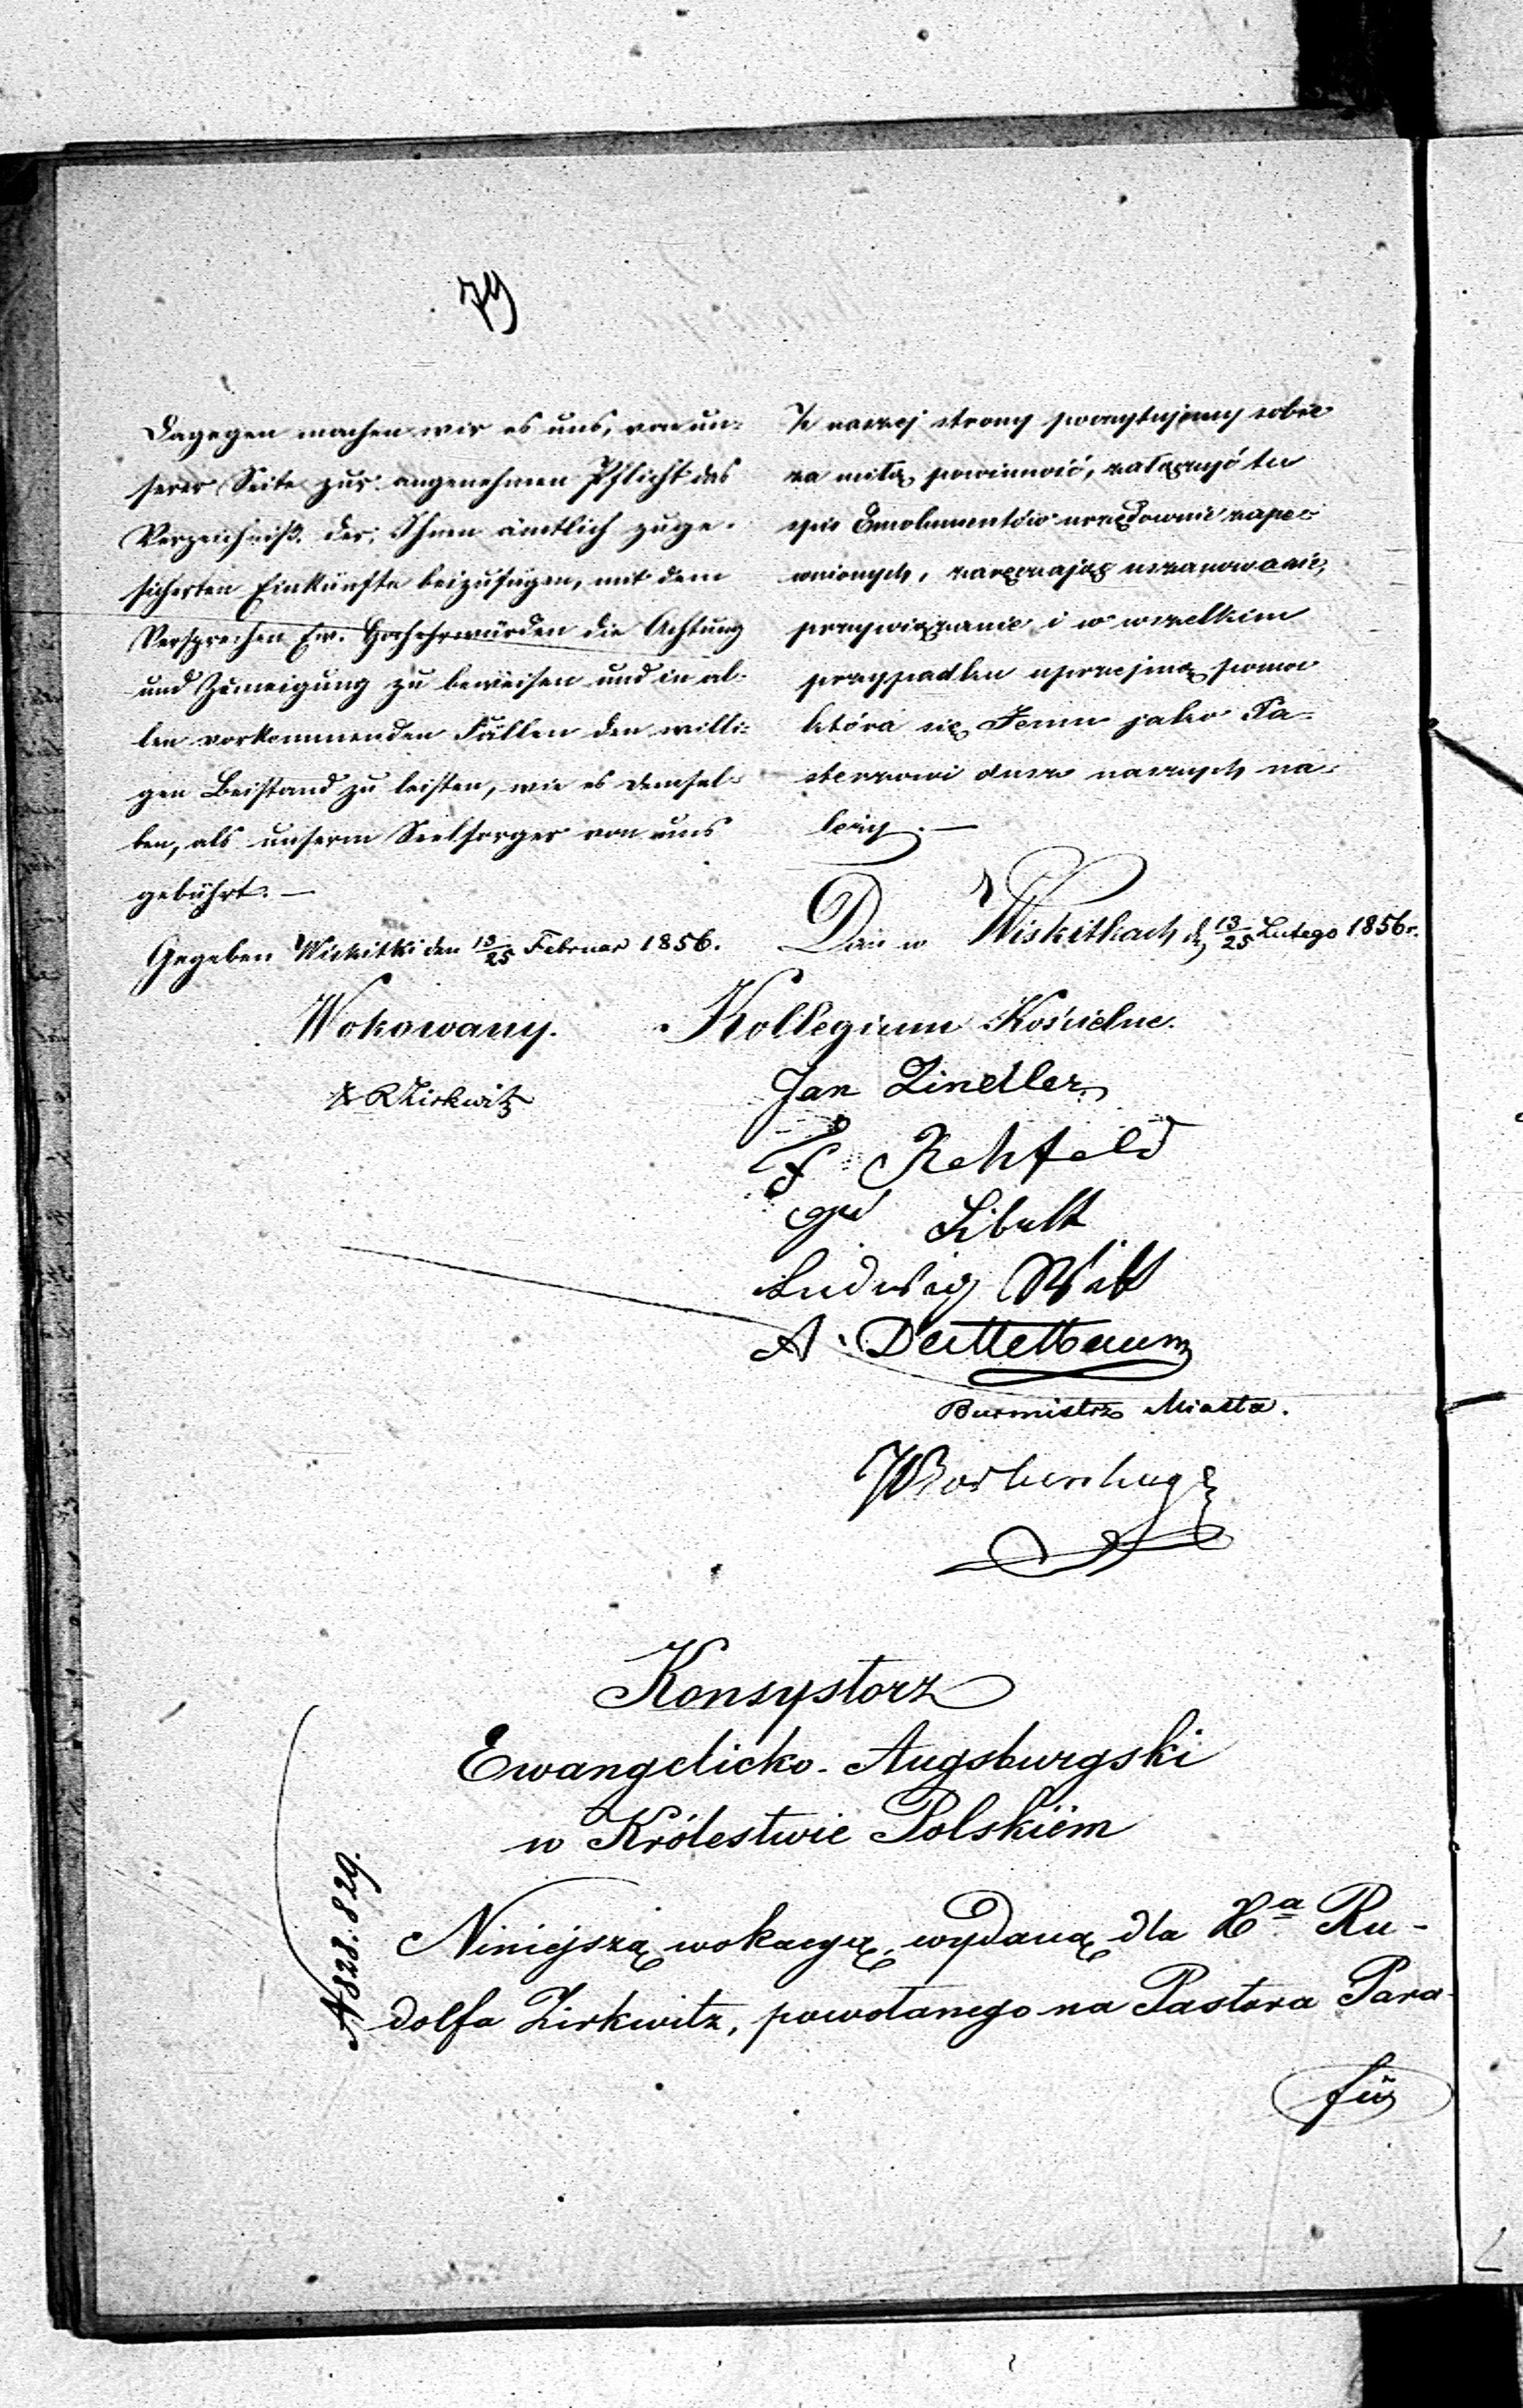 79
Dagegen machen wir es uns, von un-
serer Seite zur angenehmen Pflicht das
Verzeichniß der, Ihnen amtlich zuge-
sicherten Einkünfte beizufügen, mit dem
Versprechen Ew. Hochehrwürden die Achtung
und Zuneigung zu beweisen und in al-
len vorkommenden Fällen den willi-
gen Beistand zu leisten, wie es demsel-
ben, als unserm Seelsorger von uns
gebührt. —
Gegeben Wiskitki den 13/25 Februar 1856.
Z naszej strony poczytujemy sobie
za miłą powinność, załączyć tu
spis Emolumentów urzędownie zape-
wnionych, zaręczając uszanowanie,
przywiązanie i w wszelkim
przypadku uprzejmą pomoc
która się Jemu jako Pa-
sterzowi dusz naszych na-
leży. —
Dan w Wiskitkach d. 13/25 Lutego 1856 r.
Wokowany.
X R Zirkwitz
Kollegium Kościelne.
Jan Zindler
F Rehfeld
Libelt
Ludwig Witt
A. Dettelbaum
Burmistrz Miasta.
Konsystorz
Ewangelicko-Augsburgski
w Królestwie Polskiém
N 828.829.
Niniejszą wokacyą, wydaną dla Xa Ru-
dolfa Zirkwitz, powołanego na Pastora Para-
fii